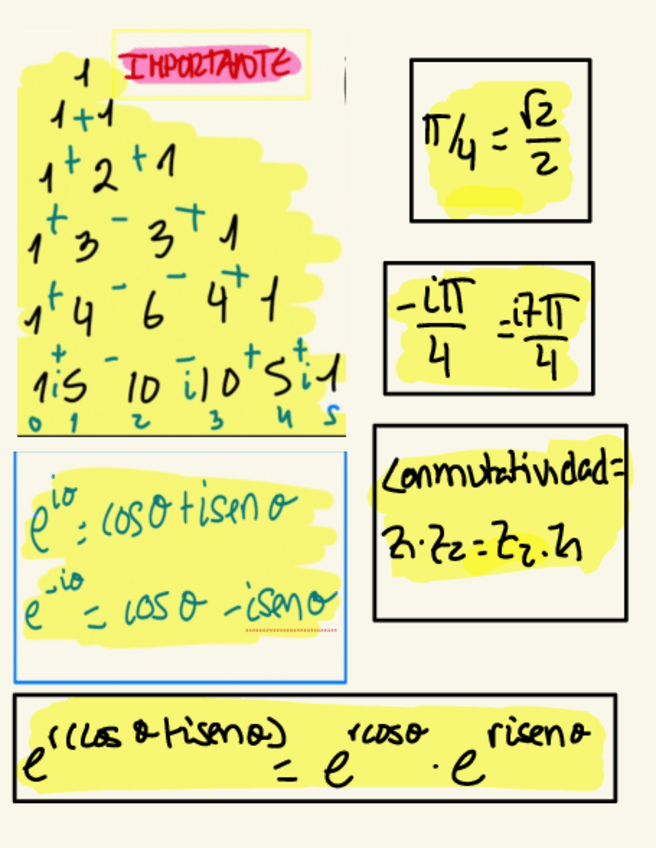 IMPORTANTE
1
1 + 1
1 + 2 + 1
1 + 3 - 3 + 1
1 + 4 - 6 - 4 + 1
1 +i 5 - 10 -i 10 + 5 +i 1
0 1 2 3 4 5
e^iθ = cosθ + isenθ
e^-iθ = cosθ - isenθ
π/4 = √2/2
-iπ/4 = i7π/4
Conmutatividad =
z₁·z₂ = z₂·z₁
e^r(cosθ + isenθ) = e^rcosθ · e^risenθ